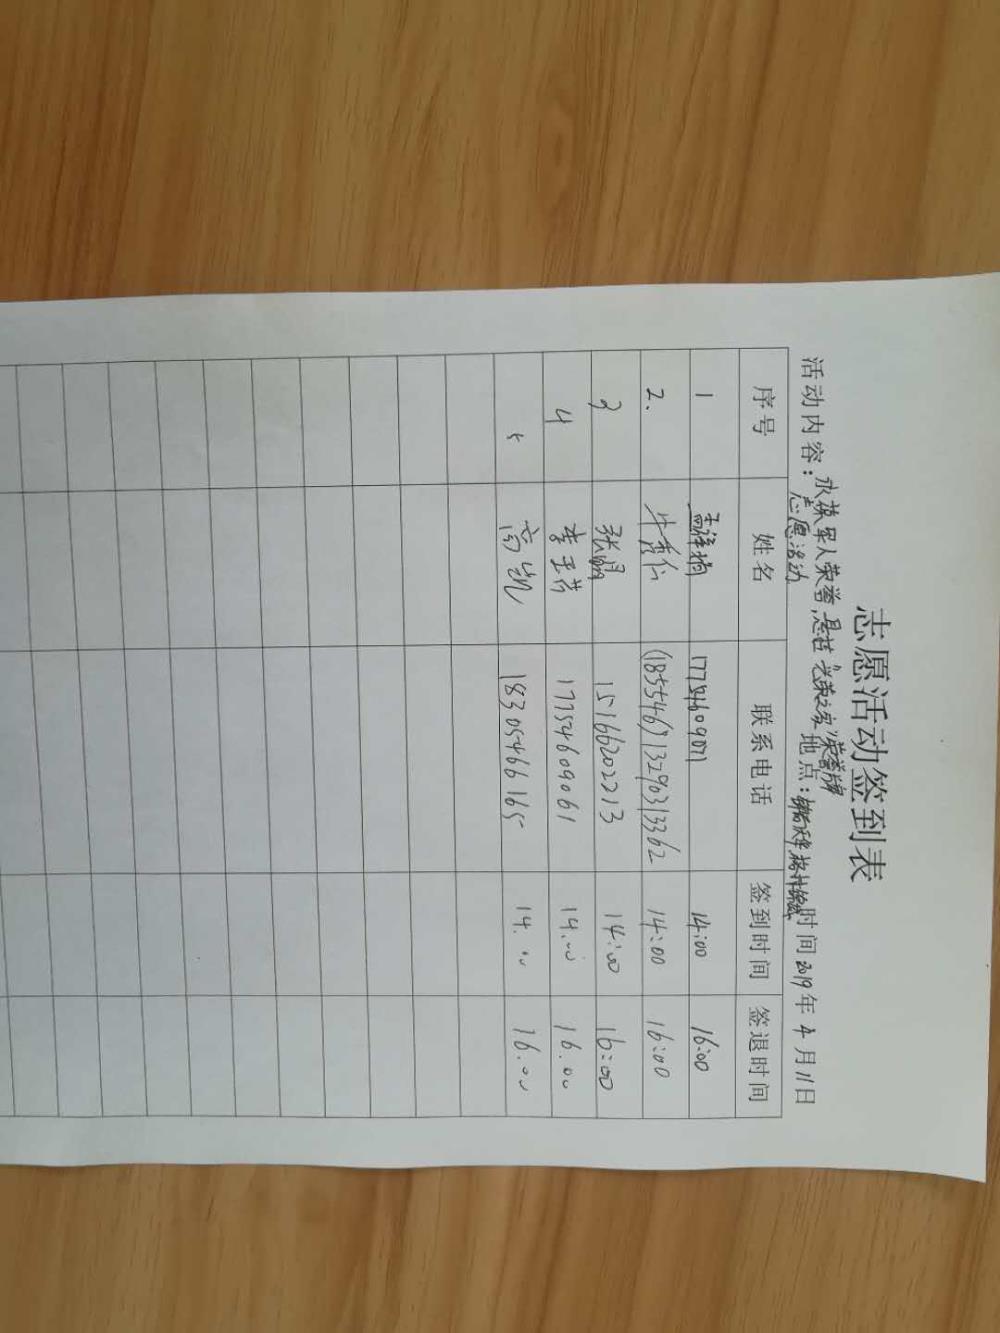 志愿活动签到表
活动内容：永葆军人荣誉,悬挂“光荣之家”荣誉牌 地点： 时间2019年4月11日
志愿活动
序号 姓名 联系电话 签到时间 签退时间
1 孟祥楠 17754609071 14:00 16:00
2. 牛秀仁 (18554671329)0313362 14:00 16:00
3 张明 15166202213 14:00 16:00
4 李玉芳 17754609061 14.00 16.00
5 高凯 18305466165 14.00 16.00